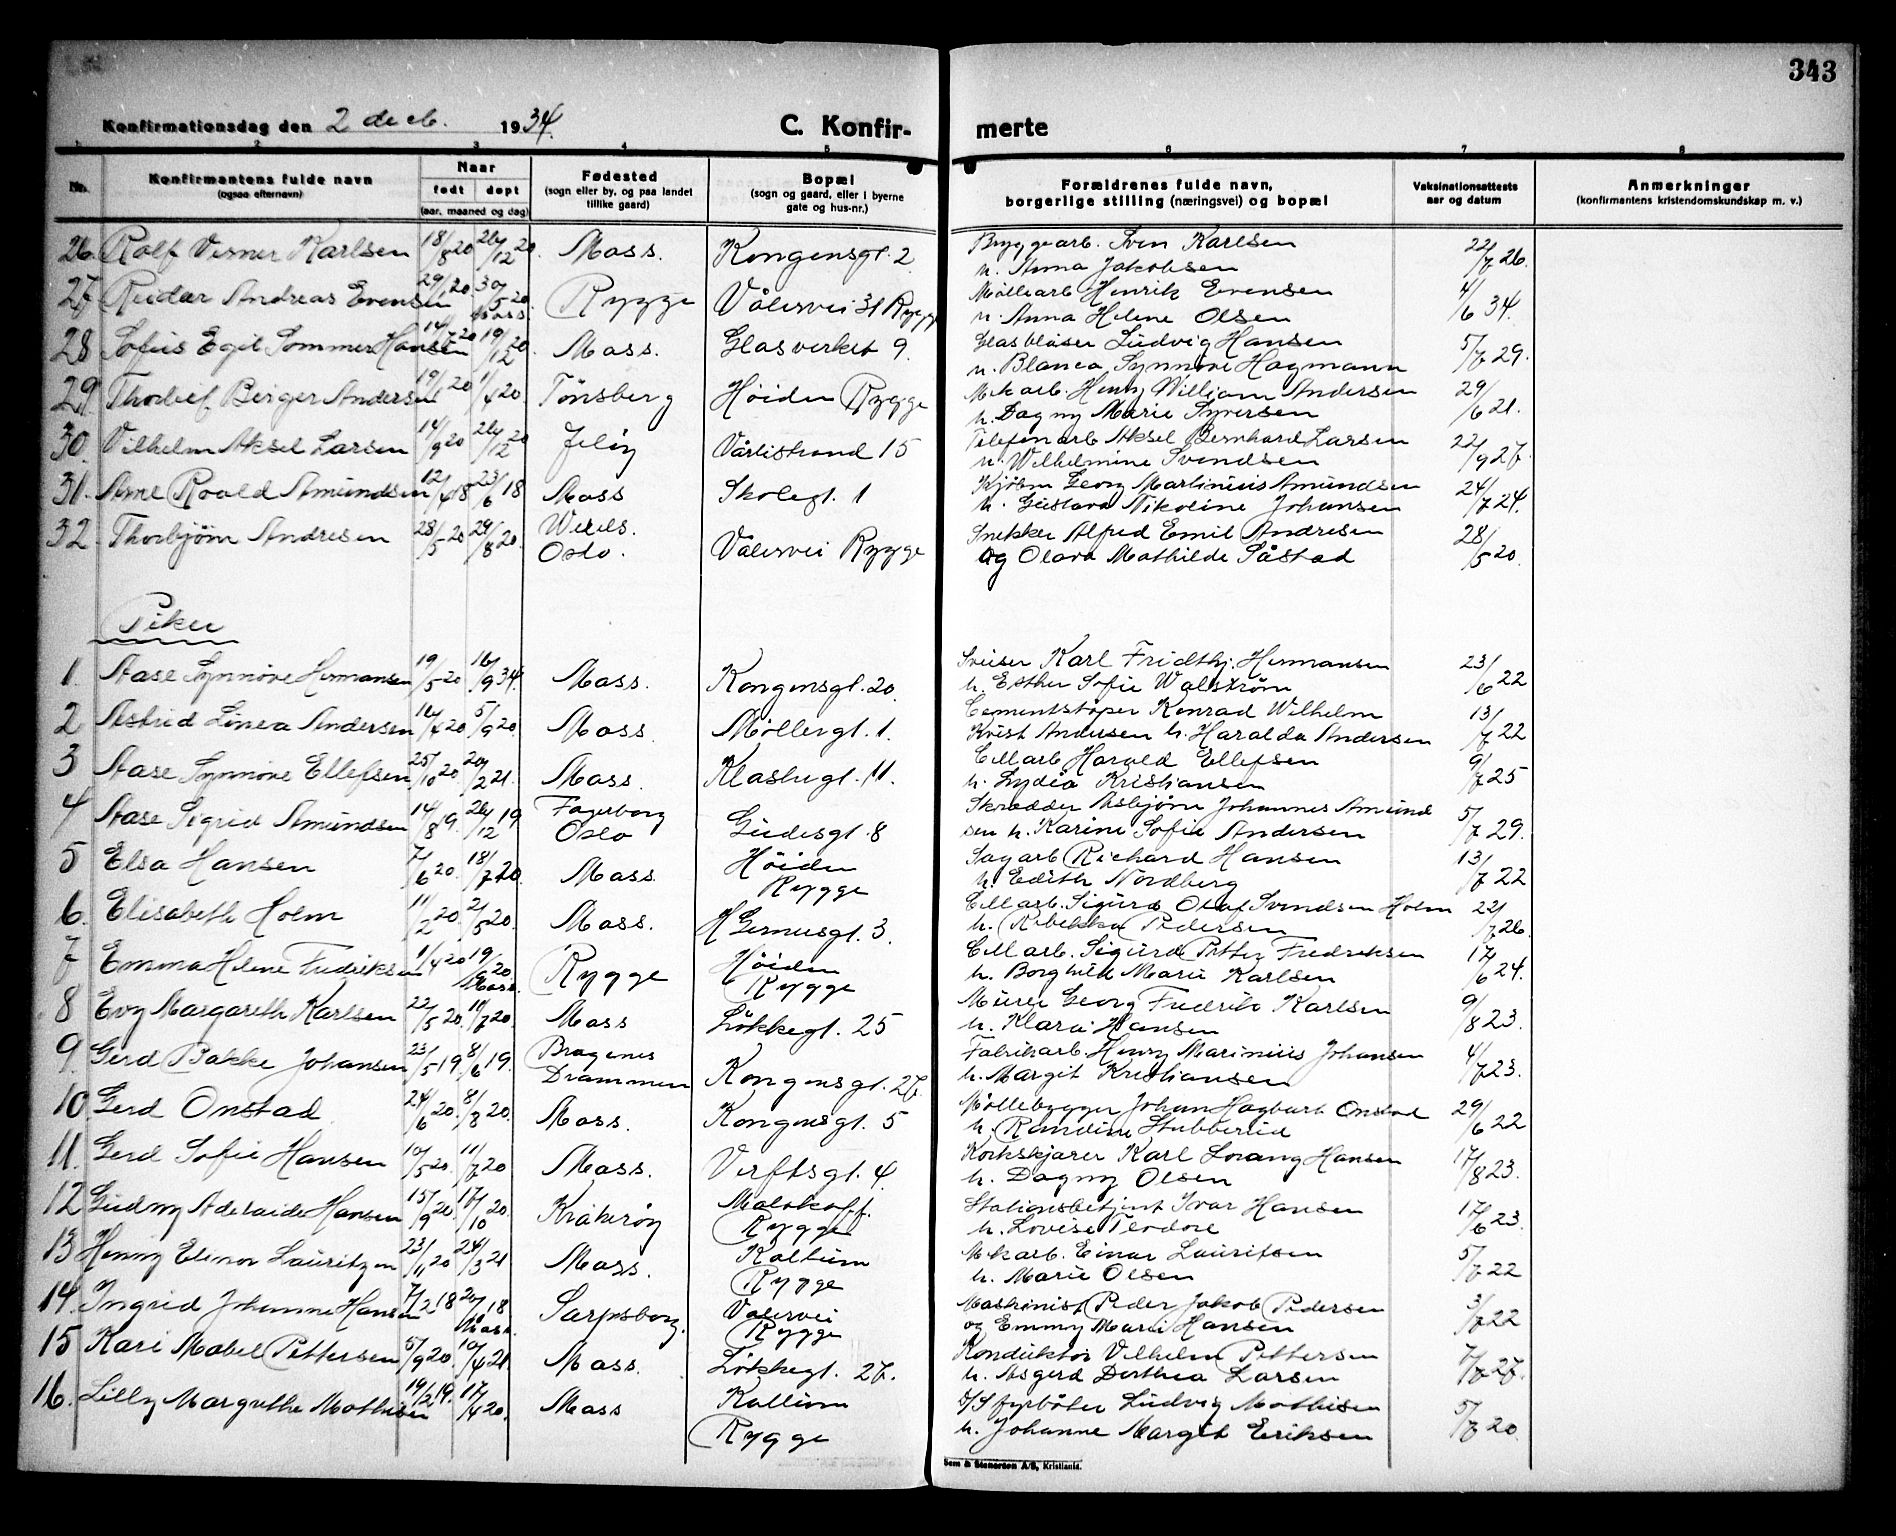 343
Konfirmationsdag den 2 decb. 1934.
C. Konfir- merte
1 2 3 4 5 6 7 8
Nr. Konfirmantens fulde navn (ogsaa efternavn) Naar født døpt (aar, maaned og dag) Fødested (sogn eller by, og paa landet tillike gaard) Bopæl (sogn og gaard, eller i byerne gate og hus-nr.) Forældrenes fulde navn, borgerlige stilling (næringsvei) og bopæl Vaksinationsattests aar og datum Anmerkninger (konfirmantens kristendomskundskap m. v.)
26. Rolf Verner Karlsen 18/8 20 26/12 20. Moss. Kongensgt. 2 Bryggearb. Sven Karlsen 22/7 26.
h. Anna Jakobsen
27 Reidar Andreas Evensen 29/ 20. 30/5 20 Moss. Rygge Vålervei 31 Rygge Möllearb Henrik Evensen 4/6 34.
h. Anna Helene Olsen
28 Sofus Egil Sommer Hansen 14/ 20 19/12 20. Moss. Glasverket 9. Glasblåser Ludvig Hansen 5/7 29.
h. Blanca Synnöve Hagmann
29. Thorleif Birger Andersen 19/ 20 1/4 20 Tönsberg Höiden Rygge Mek arb. Henry William Andersen 29/6 21.
h. Dagny Marie Syversen
30. Vilhelm Aksel Larsen 14/9 20 26/12 20 Jelöy Vårlistrand 15 Telefonarb Aksel Bernhard Larsen 22/9 27.
h. Wilhelmine Svendsen
31. Arne Roald Amundsen 12/4 18 23/6 18 Moss Skolegt. 1 Kjöbm Georg Martinius Amundsen 24/7 24.
h. Gustava Nikoline Johansen
32 Thorbjörn Andresen 28/5 20 29/8 20. Oslo. Vålervei Rygge Snekker Alfred Emil Andresen 28/5 20.
og Olava Mathilde Såstad
Piker
1. Aase Synnöve Hermansen 19/5 20 16/9 34. Moss. Kongensgt. 20. Sveiser Karl Fridthj. Hermansen 23/6 22
h. Esther Sofie Walström
2 Astrid Linea Andersen 16/4 20 5/9 20. Moss. Möllergt. 1. Cementstöper Konrad Wilhelm 13/7 22
Krist Andersen h. Haralda Andersen
3 Aase Synnöve Ellefsen 25/10 20 20/2 21. Moss. Klostergt. 11. Cellarb Harald Ellefsen 9/7 25
h. Lydia Kristiansen
4 Aase Sigrid Amundsen 14/8 19. 26/12 19 Fagerborg Oslo Gudesgt. 8 Skrædder Asbjörn Johannes Amund 5/7 29.
sen h. Karine Sofie Andersen
5 Elsa Hansen 7/6 20. 18/7 20. Moss. Höiden Rygge Sagarb Richard Hansen 13/7 22
h. Edith Nordberg
6. Elisabeth Holm 11/2 20. 2/5 20. Moss. H Gernersgt. 3. Cellarb. Sigurd Olaf Svendsen Holm 22/7 26.
h. Rebekka Pedersen
7 Emma Helene Fredriksen 1/4 20 19/9 20. Moss. Rygge Höiden Rygge Cellarb. Sigurd Petter Fredriksen 17/6 24.
h. Borghild Marie Karlsen
8 Evy Margareth Karlsen 22/5 20. 10/7 20. Moss Lökkegt. 25 Murer Georg Fredrik Karlsen 9/8 23.
h. Klara Hansen
9. Gerd Bakke Johansen 23/5 19. 8/6 19. Bragenes Drammen Kongensgt. 27. Fabrikarb. Henry Marinius Johansen 4/7 23.
h. Margit Kristiansen
10 Gerd Onstad 24/6 20. 8/8 20. Moss. Kongensgt. 5 Möllebygger Johan Hagbart Onstad 29/6 22
h. Randine Stubberud
11. Gerd Sofie Hansen 10/5 20. 11/7 20 Moss. Verftsgt. 4 Korkskjærer Karl Lorang Hansen 17/8 23.
h. Dagny Olsen
12 Gudny Adelaide Hansen 15/9 20. 17/10 20. Kråkeröy Malakoff. Rygge Stationsbetjent Ivar Hansen 17/6 23.
h. Lovise Teodore
13 Henny Elinor Lauritzen 23/11 20 24/3 21 Moss. Kallum Rygge Mek arb. Einar Lauritsen 5/7 22
h. Marie Olsen
14. Ingrid Johanne Hansen 7/2 18 20/7 18 Moss. Sarpsborg. Vålervei Rygge Maskinist Peder Jakob Pedersen 3/7 22
og Emmy Marie Hansen
15 Kari Mabel Pettersen 5/9 20. 10/4 21 Moss. Lökkegt. 27. Konduktör Vilhelm Pettersen 7/7 27.
h. Asgerd Dorthea Larsen
16. Lilly Margrethe Mathisen 19/2 19. 17/4 20. Moss Kallum Rygge D/S fyrböter Ludvig Mathisen 5/7 20.
h. Johanne Margit Eriksen
Sem & Stenersen A/S, Kristiania.